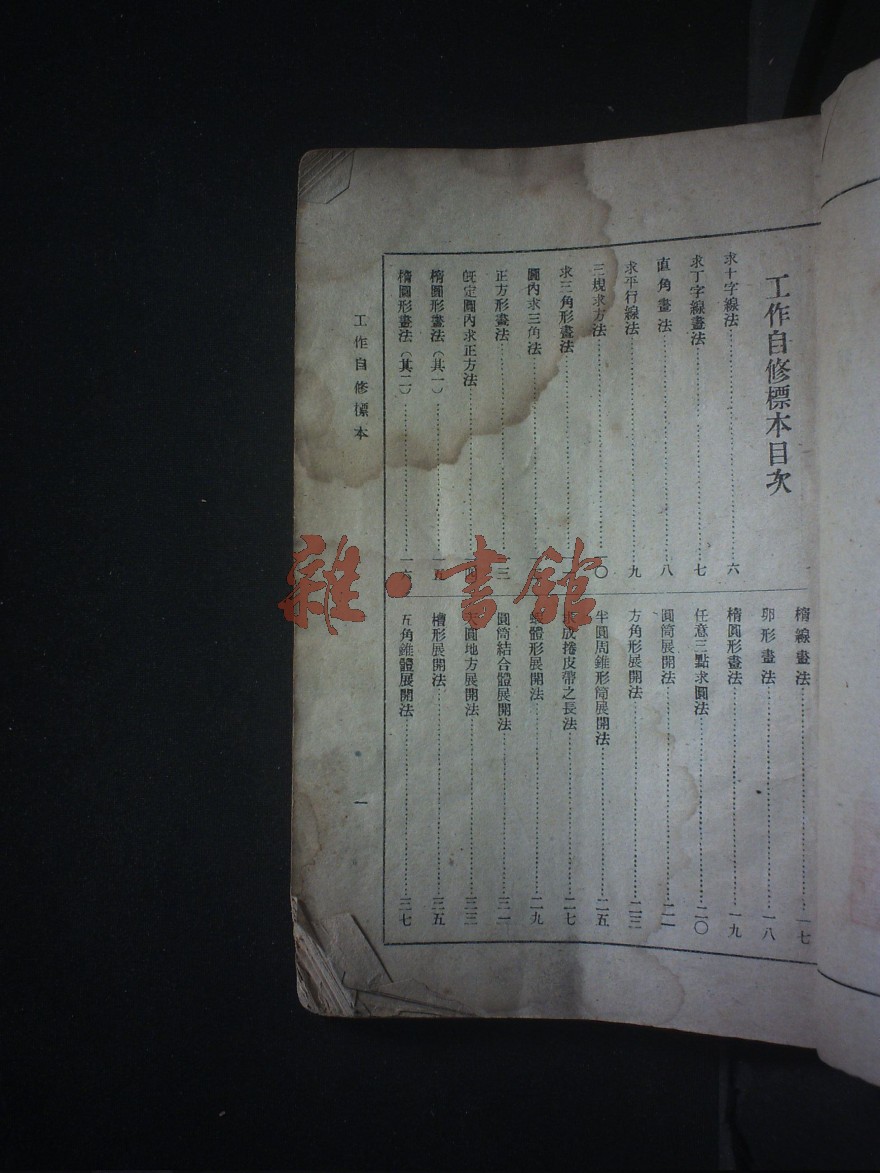 工作自修標本目次
求十字線法……六
求丁字線畫法……七
直角畫法……八
求平行線法……九
三規求方法……一〇
求三角形畫法……
圓內求三角法……
正方形畫法……一三
旣定圓內求正方法……
橢圓形畫法（其一）……
橢圓形畫法（其二）……一六
橢線畫法……一七
卵形畫法……一八
橢圓形畫法……一九
任意三點求圓法……二〇
圓筒展開法……二一
方角形展開法……二三
半圓周錐形筒展開法……二五
成捲皮帶之長法……二七
體形展開法……二九
圓筒結合體展開法……三一
圓地方展開法……三三
槽形展開法……三五
五角錐體展開法……三七
工作自修標本
一
雜·書館